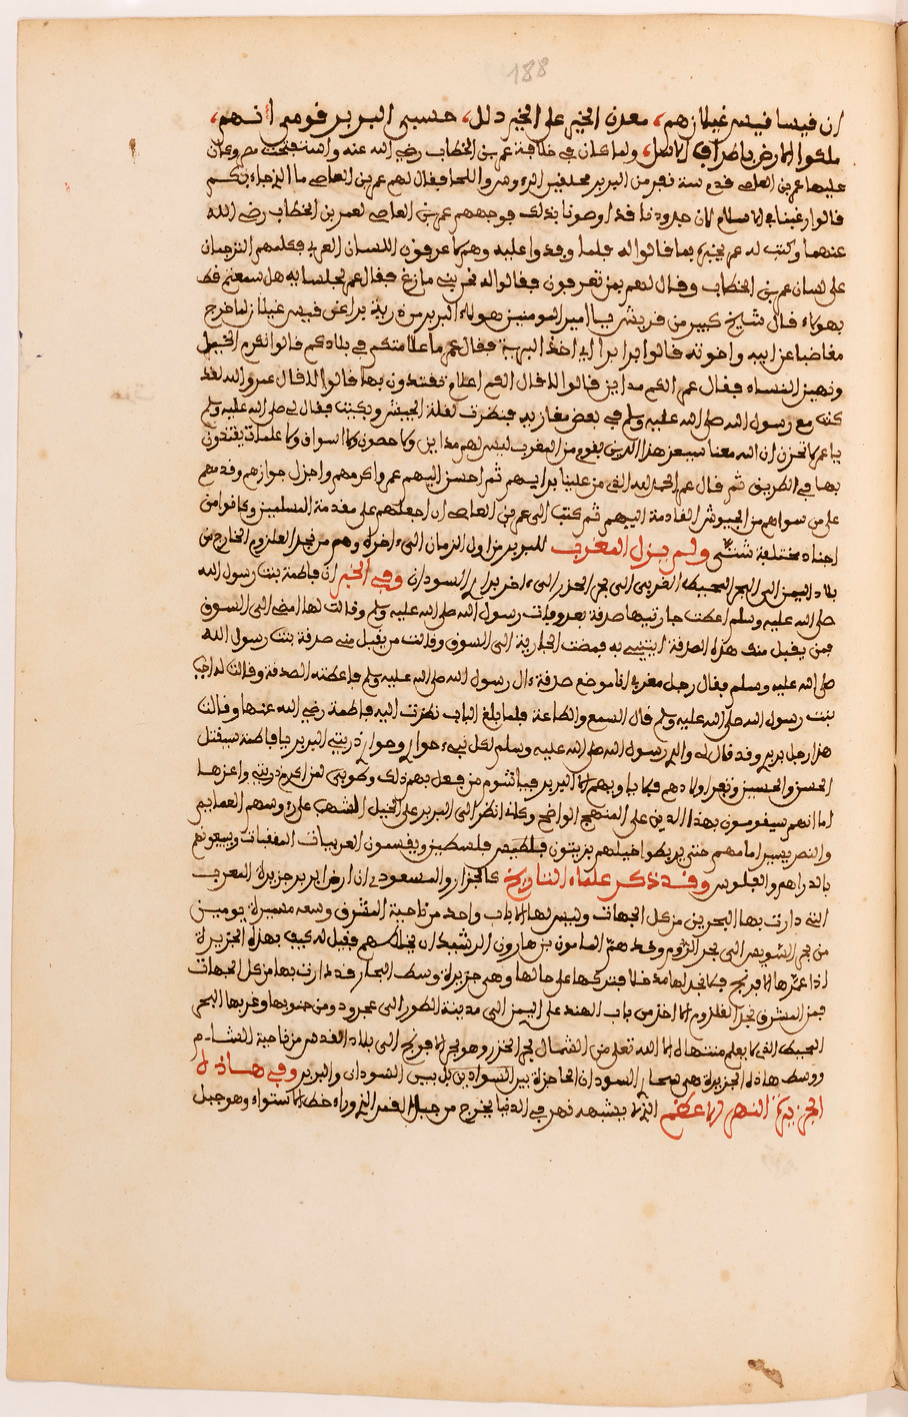 188
ان قيسا قيس غيلان هم، معدن الخير على الخير دلل، حسبي البربر قومي انهم،
ملكوا الارض باطراف الاسل، ولما كان في خلافة عمر بن الخطاب رضي الله عنه وافتتحت مصر وكان
عليها عمر بن العاص قدم ستة نفر من البربر محلقين الروس واللحا فقال لهم عمر بن العاص ما الذي جاء بكم
قالوا رغبنا في الاسلام لان جدودنا قد اوصونا بذلك فوجههم عمر بن العاص لعمر بن الخطاب رضي الله
عنهما وكتب له عمر بخبرهم بما قالوا له فلما وفدوا عليه وهم لا يعرفون اللسان العربي فكلمهم الترجمان
على لسان عمر بن الخطاب وقال لهم بمن تعرفون فقالوا له نحن بني مازغ فقال عمر لجلسائه هل سمعتم قط
بهولاء فقال شيخ كبير من قريش يا امير المومنين هولاء البربر من ذرية بر ابن قيس غيلان لما خرج
مغاضبا عن ابيه واخوته قالوا بر بر اي اخذ البرية فقال عمر ما علامتكم في بلادكم قالوا نكرم الخيل
ونهين النساء فقال عمر الكم مداين قالوا لا قال الكم اعلام تهتدون بها قالوا لا قال عمر والله لقد
كنت مع رسول الله صلى الله عليه وسلم في بعض مغازيه فنظرت لقلة الجيش وبكيت فقال لي صلى الله عليه وسلم
يا عمر لا تحزن ان الله معنا سيعز هذا الدين بقوم من المغرب ليس لهم مداين ولا حصون ولا اسواق ولا علامات يهتدون
بها في الطريق ثم قال عمر الحمد لله الذي من علينا برايتهم ثم احسن اليهم عمر واكرمهم واجزل جوازهم وقدمهم
على من سواهم من الجيوش القادمة اليهم ثم كتب الى عمر بن العاص ان اجعلهم على مقدمة المسلمين وكانوا من
اجناد مختلفة شتى ولم يزل المغرب للبربر من اول الزمان الى اخره وهم من نجد القلزم الخارج من
بلاد اليمن الى البحر المحيط الغربي الى بحر الخزر الى اخر بلاد السودان وفي الخبر ان فاطمة بنت رسول الله
صلى الله عليه وسلم اعطت جاريتها صدقة بعد وفات رسول الله صلى الله عليه وسلم وقالت لها امض الى السوق
فمن يقبل منك هذه الصدقة ايتيني به فمضت الجارية الى السوق وقالت من يقبل مني صدقة بنت رسول الله
صلى الله عليه وسلم فقال رجل مغربي انا موضع صدقة ءال رسول الله صلى الله عليه وسلم فاعطته الصدقة وقالت له اجب
بنت رسول الله صلى الله عليه وسلم قال السمع والطاعة فلما بلغ الباب نظرت اليه فاطمة رضي الله عنها وقالت
هذا رجل بربري وقد قال لي والدي رسول الله صلى الله عليه وسلم لكل نبيء حواري وحواري ذريتي البربر يا فاطمة سيقتل
الحسن والحسين وتفر اولادهم فلا ياويهم الا البربر فيا شوم من فعل بهم ذلك وطوبى لمن اكرم ذريتي واعزها
اما انهم سيقومون بهذا الدين على المنهج الواضح وكاني انظر الى البربر على الخيل الشهب على روسهم العمايم
والنصر يسير امامهم حتى يربطوا خيلهم بزيتون فلسطين ويقسمون العربيات المنقبات ويبيعونهم
بالدراهم والفلوس وقد ذكر علماء التاريخ كالجزار والمسعودي ان ارض البربر جزيرة المغرب
التي دارت بها البحرين من كل الجهات وليس لها الا باب واحد من ناحية المشرق وسعه مسيرة يومين
من بحر السويس الى بحر الروم وقد همّ المامون بن هارون الرشيد ان يخالهم فقيل له كيف بهذه الجزيرة
اذا عمّرها الافرنج فلا تجد لها مدخلا فتركها على حالها وهي جزيرة وسط البحار قد دارت بها من كل الجهات
فمن المشرق بحر القلزم الاخذ من باب الهند على اليمن الى مدينة الطور الى عجرود ومن جنوبها وغربها البحر
المحيط الذي لا يعلم منتهاه الا الله تعلى من الشمال بحر الخزر وهو بحر الافرنج الى بلاد القدس من ناحية الشام
ووسط هاذه الجزيرة هي صحاري السودان الحاجزة بين السواد بل بين السودان والبربر وفي هاذه
الجزيرة النهر الاعظم الذي لا يشبهه نهر في الدنيا يخرج من جبال القمر الذي وراء خط الاستواء وهو جبل